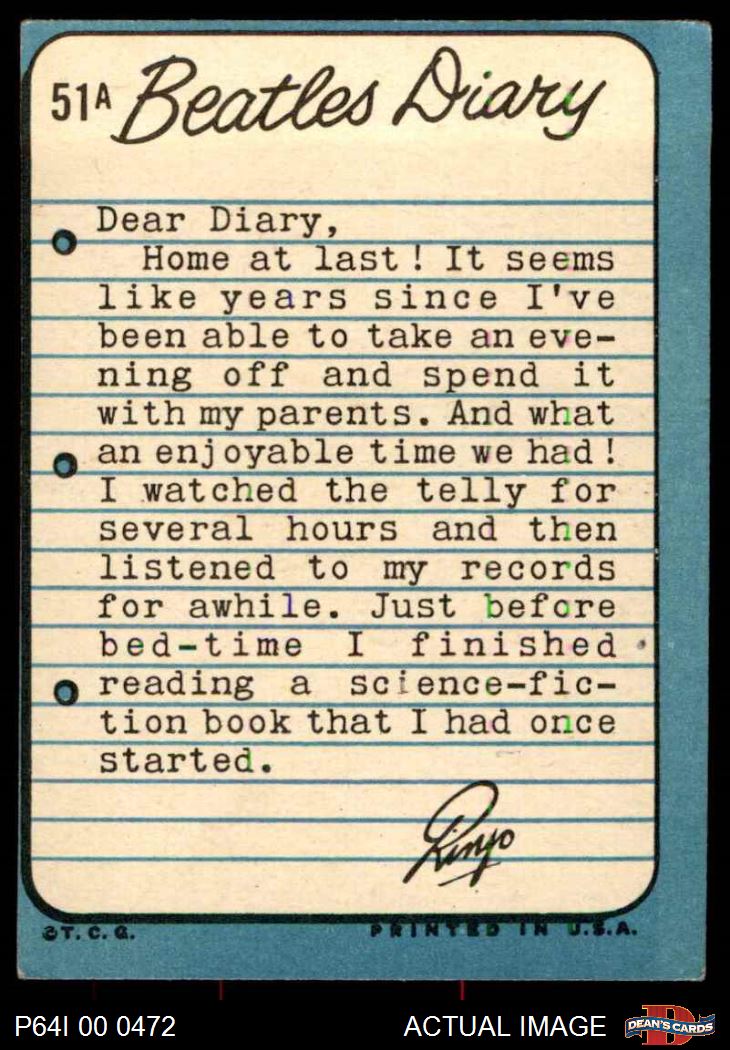 51A Beatles Diary
Dear Diary,
Home at last! It seems
like years since I've
been able to take an eve-
ning off and spend it
with my parents. And what
an enjoyable time we had!
I watched the telly for
several hours and then
listened to my records
for awhile. Just before
bed-time I finished
reading a science-fic-
tion book that I had once
started.
Ringo
©T.C.G. PRINTED IN U.S.A.
P64I 00 0472 ACTUAL IMAGE D DEAN'S CARDS